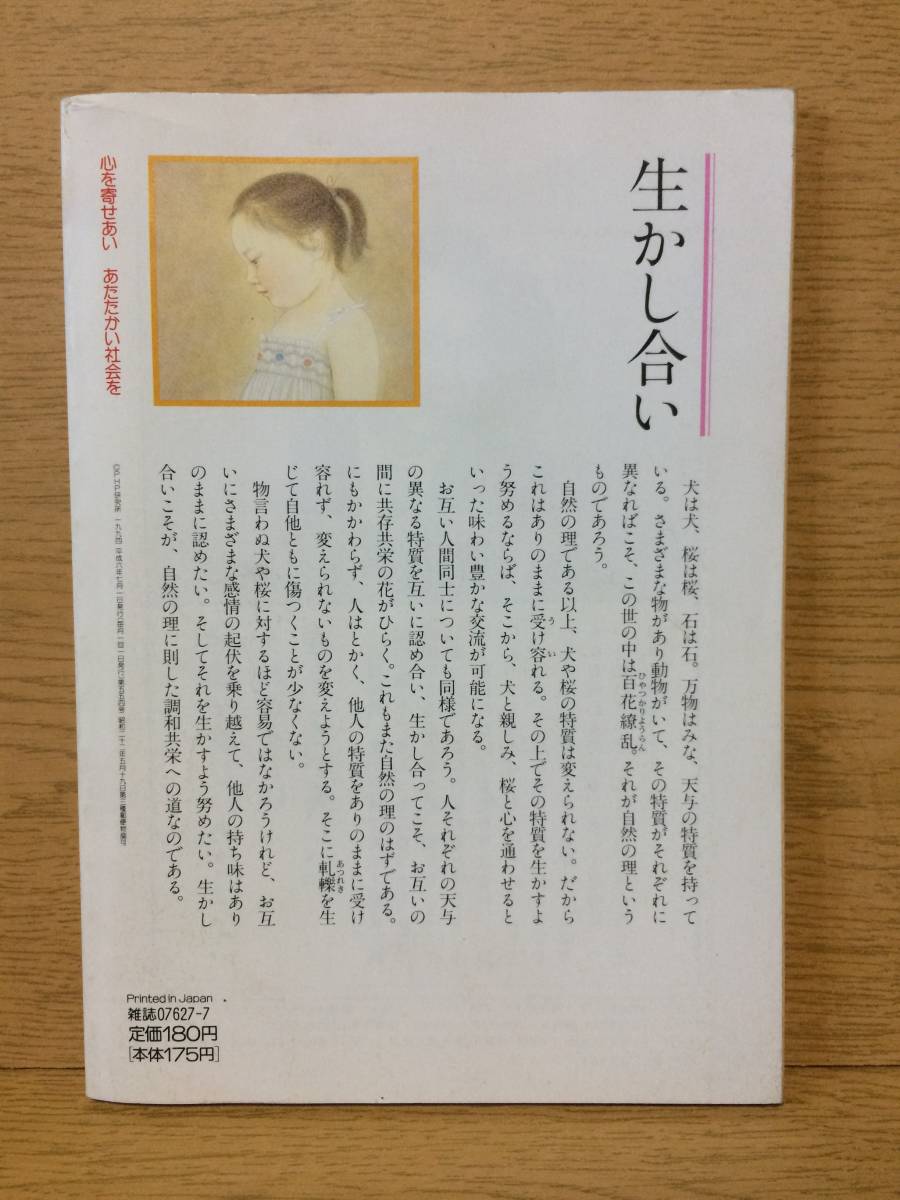 生かし合い
犬は犬、桜は桜、石は石。万物はみな、天与の特質を持って
いる。さまざまな物があり動物がいて、その特質がそれぞれに
異なればこそ、この世の中は百花繚乱。それが自然の理という
ひやつかりようらん
ものであろう。
自然の理である以上、犬や桜の特質は変えられない。だから
これはありのままに受け容れる。その上でその特質を生かすよ
う い
う努めるならば、そこから、犬と親しみ、桜と心を通わせると
いった味わい豊かな交流が可能になる。
お互い人間同士についても同様であろう。人それぞれの天与
の異なる特質を互いに認め合い、生かし合ってこそ、お互いの
間に共存共栄の花がひらく。これもまた自然の理のはずである。
にもかかわらず、人はとかく、他人の特質をありのままに受け
容れず、変えられないものを変えようとする。そこに軋轢を生
あつれき
じて自他ともに傷つくことが少なくない。
物言わぬ犬や桜に対するほど容易ではなかろうけれど、お互
いにさまざまな感情の起伏を乗り越えて、他人の持ち味はあり
のままに認めたい。そしてそれを生かすよう努めたい。生かし
合いこそが、自然の理に則した調和共栄への道なのである。
心を寄せあい あたたかい社会を
Printed in Japan
雑誌07627-7
定価180円
[本体175円]